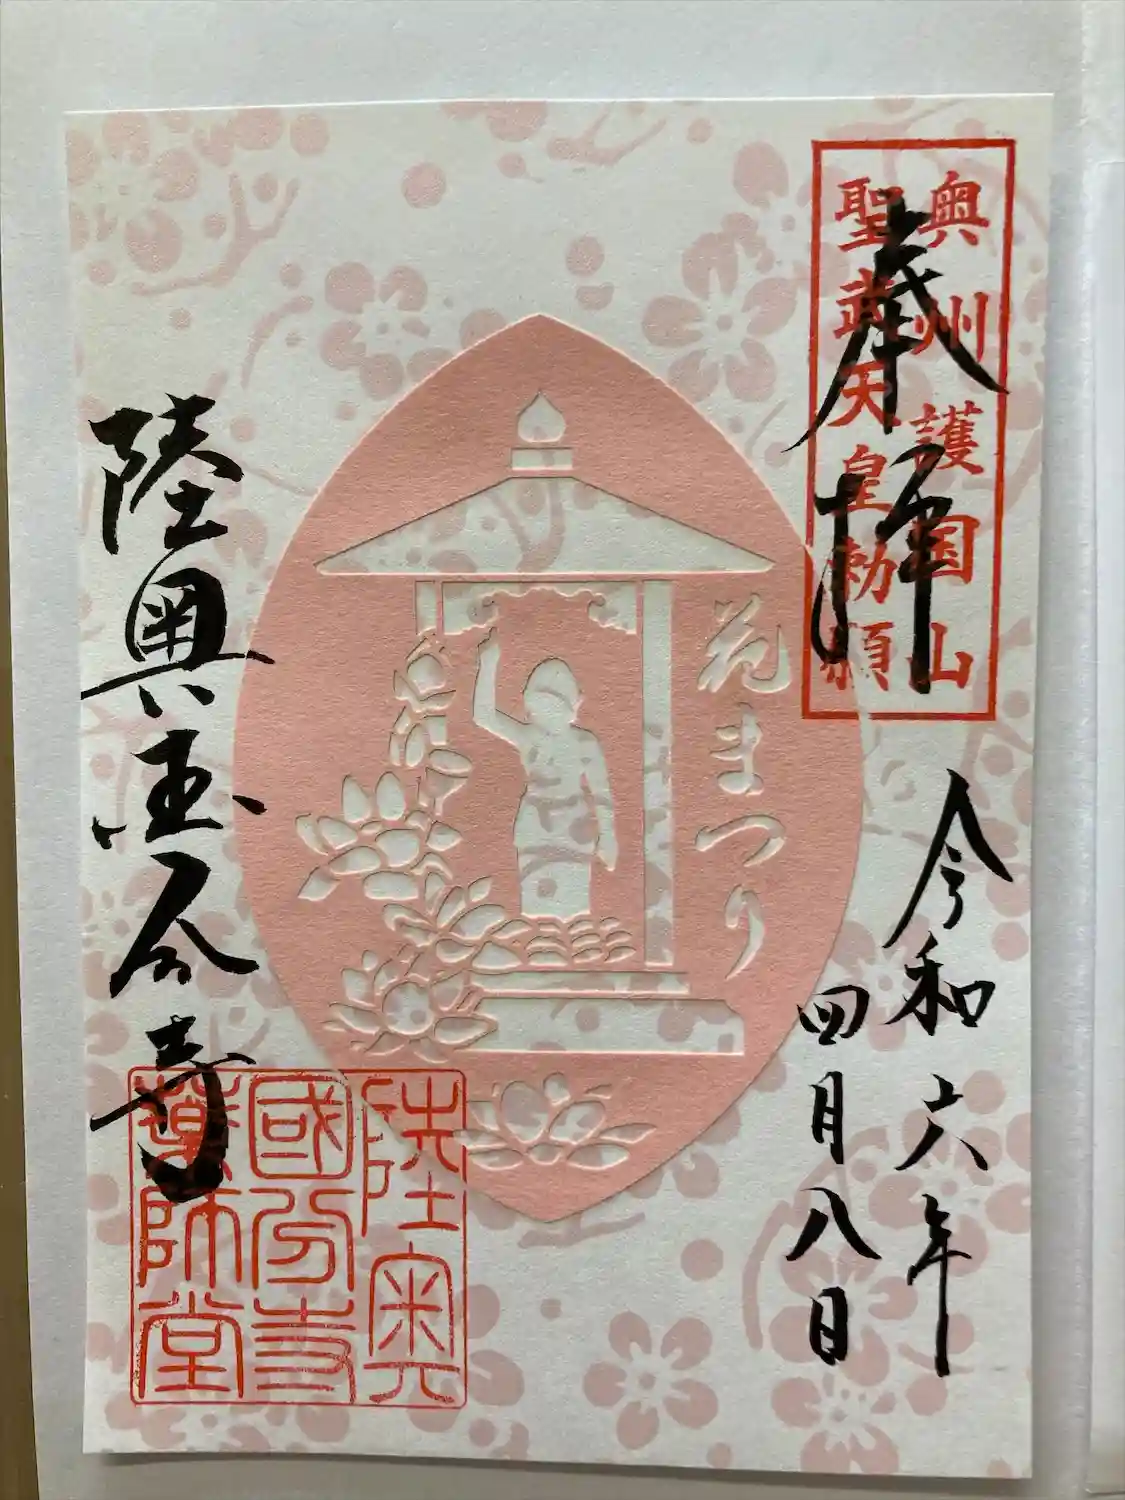 奥州護国山
聖武天皇勅願
奉拝
令和六年
四月八日
花まつり
陸奥国分寺
陸奥
國分寺
薬師堂